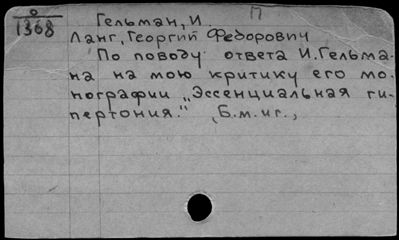 О
1368
Гельман, И. П
Ланг, Георгий Федорович
По поводу ответа И. Гельма-
на на мою критику его мо-
нографии „Эссенциальная ги-
пертония." (Б.м.иг.,